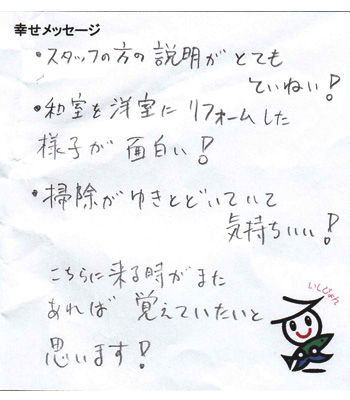 幸せメッセージ
・スタッフの方の説明がとても
ていねい!
・和室を洋室にリフォームした
様子が面白い!
・掃除がゆきとどいていて
気持ちいい!
こちらに来る時がまた
あれば覚えていたいと
思います!